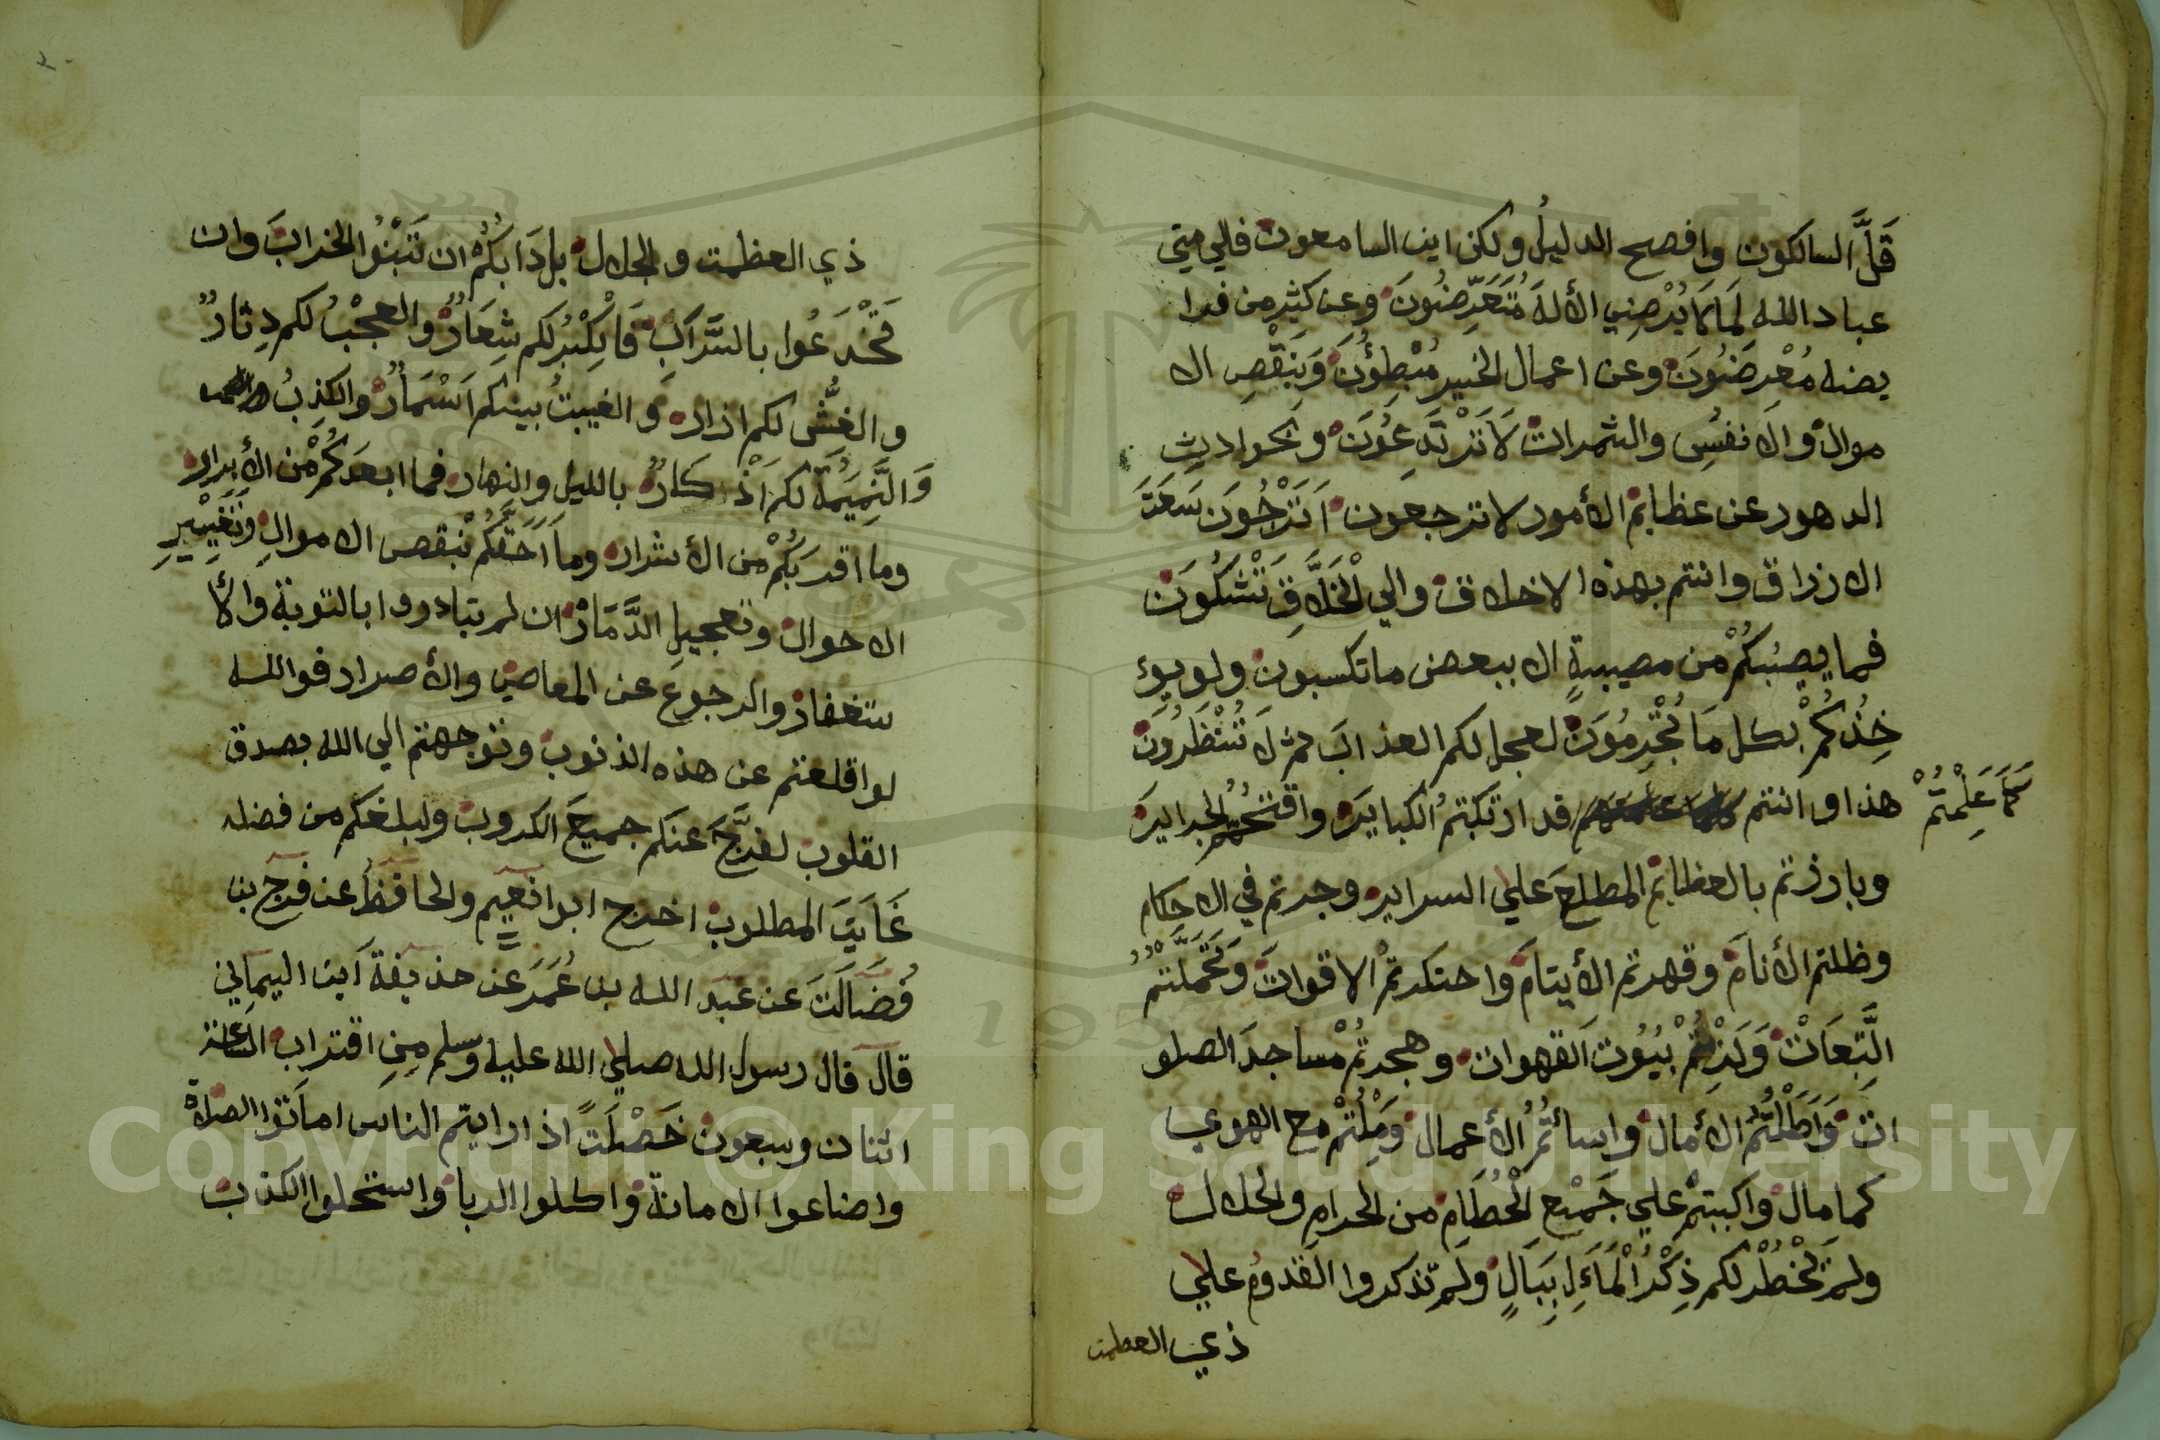 قَلَّ السالكون وافصح الدليلُ ولكن اين السامعون فالي متي
عباد الله لِمَا لَا يُرْضِي الأله مُتَعَرِّضُونَ وعن كثير من فرا
يضه مُعْرِضُونَ وعن اعمال الخير مُبْطِؤُنَ وَبِنَقْصِ الا
موال والانفسِ والثمرات لَا تَرْتَدِعُونَ وبحوادِثِ
الدهور عن عظائم الأمور لا ترجعون اَتَرْجُونَ سَعَتَ
الارزاق وانتم بهذه الاخلاق والي الْخَلَّاقِ تَشْكُونَ
فما يصيبُكُمْ من مصيبةٍ الا ببعض ما تكسبون ولو يوء
خِذُكُمْ بكل مَا تُجْرِمُونَ لعجل لكم العذابَ ثم لَا تُنْظَرُونَ
هذا وانتم قد ارتكبتمُ الكبايرَ واقتحمتمُ الجرايرَ
كَمَا عَلِمْتُمْ
وبارزتم بالعظائم المطلعَ علي السراير وجرتم في الاحكام
وظلتم الأنامَ وقهرتم الأيتامَ واحتكرتمُ الاقواتَ وَتَحَمَّلْتُمُ
التَّبِعَاتْ وَلَزِمْتُمْ بُيُوْتَ القهوات وهجرتُمْ مساجدَ الصلو
ات وَاَطَلْتُمُ الأمال واسأتُمُ الأعمال وَمِلْتُمْ مع الهوي
كما مال وَاكببتمْ علي جَمْعِ الْحُطَامِ من الحرامِ والحلال
ولم يَخْطُرْ لكم ذِكْرُ الْمَاَءَلِ بِبَالٍ ولَم تذكروا القدومَ علي
ذي العظمت
ذي العظمت والجلال بل دَابُكُمْ ان تَبْنُوا الخرابَ وان
تَخْدَعُوا بالسَّرَابِ فَالْكِبْرُ لكم شِعَارٌ والعجْبُ لكم دِثارٌ
والغشُّ لكم ازار وَالغيبتُ بينكم اَسْمَارٌ والكَذِبُ
وَالنَّمِيْمَةُ لكم اَذْكَارٌ بالليل والنهار فما ابعدَكُمْ من الأبرار
وما اقربَكُمْ من الأشرار وماَ اَحَقَّكُمْ بنقص الاموالِ وَتَغْيِيْرِ
الاحوال وتعجيلِ الدَّمَارْ ان لم تبادروا بالتوبة والأ
ستغفار والرجوع عن المعاصي والأصرار فوالله
لو اقلعتم عن هذه الذنوب وتوجهتم الي الله بصدق
القلوب لفرَّجَ عنكم جميعَ الكروب ولبلغكم من فضله
غَايَتَ المطلوب اخرج ابوا نعيم والحافظُ عن فرج بن
فُضَالَتَ عن عبد الله بن عُمَرَ عن حذيفةَ اَبن اليماني
قال قال رسول الله صلي الله عليه وسلم مِنِ اقتراب الساعة
اثنان وسبعون خَصْلَتً اذا رايتم الناس اماَتوا الصلاة
واضاعوا الامانة واكلوا الربا واستحلوا الكذب
Copyright © King Saud University
195